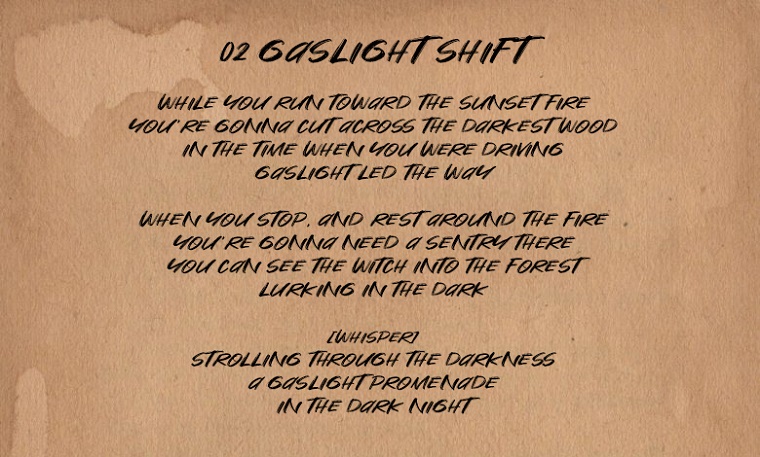 02 GASLIGHT SHIFT
WHILE YOU RUN TOWARD THE SUNSET FIRE
YOU'RE GONNA CUT ACROSS THE DARKEST WOOD
IN THE TIME WHEN YOU WERE DRIVING
GASLIGHT LED THE WAY
WHEN YOU STOP, AND REST AROUND THE FIRE
YOU'RE GONNA NEED A SENTRY THERE
YOU CAN SEE THE WITCH INTO THE FOREST
LURKING IN THE DARK
[WHISPER]
STROLLING THROUGH THE DARKNESS
A GASLIGHT PROMENADE
IN THE DARK NIGHT